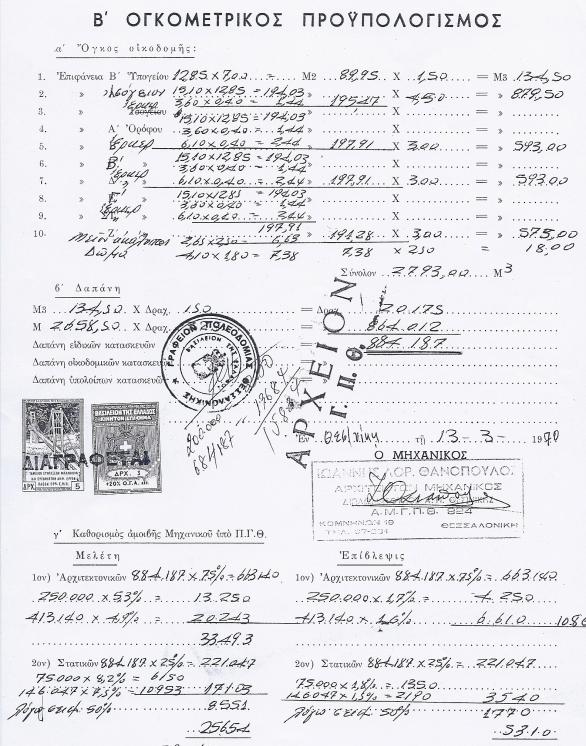 Β' ΟΓΚΟΜΕΤΡΙΚΟΣ ΠΡΟΫΠΟΛΟΓΙΣΜΟΣ
α' Ὄγκος οἰκοδομῆς:
1. Ἐπιφάνεια Β' Ὑπογείου 12,85 x 7,00 = Μ2 89,95 Χ 1,50 = Μ3 134,50
2. » Ἰσογείου 15,10 x 12,85 = 194,03
3,60 x 0,40 = 1,44 195,47 Χ 4,50 = » 879,50
3. » 15,10 x 12,85 = 194,03 » Χ = »
4. » Α' Ὀρόφου 3,60 x 0,40 = 1,44 » Χ = »
5. » 6,10 x 0,40 = 2,44 » 197,91 Χ 3,00 = » 593,00
6. » Β' » 15,10 x 12,85 = 194,03
3,60 x 0,40 = 1,44 » Χ = »
7. » 6,10 x 0,40 = 2,44 » 197,91 Χ 3,00 = » 593,00
8. » Γ' » 15,10 x 12,85 = 194,03
3,60 x 0,40 = 1,44 » Χ = »
9. » 6,10 x 0,40 = 2,44 » Χ = »
197,91
10. 2,65 x 2,50 = 6,63 » 191,28 Χ 3,00 = » 575,00
Δώμα 4,10 x 1,80 = 7,38 7,38 x 2,50 = 18,00
Σύνολον 2793,00 Μ3
β' Δαπάνη
Μ3 134,50 Χ Δραχ. 150 = Δραχ. 20.175
Μ 2658,50 Χ Δραχ. = 864.012
Δαπάνη εἰδικῶν κατασκευῶν = 884.187
Δαπάνη οἰκοδομικῶν κατασκευῶν
Δαπάνη ὑπολοίπων κατασκευῶν
ΓΡΑΦΕΙΟΝ ΠΟΛΕΟΔΟΜΙΑΣ ΘΕΣΣΑΛΟΝΙΚΗΣ
ΒΑΣΙΛΕΙΟΝ ΤΗΣ ΕΛΛΑΔΟΣ
ΑΡΧΕΙΟΝ
Γ. Π. Θ.
884187
ΔΙΑΓΡΑΦΕΤΑΙ
ΔΡΧ 5
ΒΑΣΙΛΕΙΟΝ ΤΗΣ ΕΛΛΑΔΟΣ
ΚΙΝΗΤΟΝ ΕΠΙΣΗΜΑ
ΔΡΧ. 3
+20% Ο.Γ.Α.
Ἐν Θεσ/νίκη τῇ 13-3-1970
Ο ΜΗΧΑΝΙΚΟΣ
ΙΩΑΝΝΗΣ ΔΟΡ. ΘΑΝΟΠΟΥΛΟΣ
ΑΡΧΙΤΕΚΤΩΝ ΜΗΧΑΝΙΚΟΣ
Α.Μ.Γ.Π.Θ. 824
ΚΟΜΝΗΝΩΝ 19 ΘΕΣΣΑΛΟΝΙΚΗ
γ' Καθορισμὸς ἀμοιβῆς Μηχανικοῦ ὑπὸ Π.Γ.Θ.
Μελέτη
1ον) Ἀρχιτεκτονικῶν 884.187 x 75% = 663.140
250.000 x 5,3% = 13.250
413.140 x 4,9% = 20.243
33.493
2ον) Στατικῶν 884.187 x 25% = 221.047
75.000 x 8,2% = 6150
146.047 x 7,5% = 10953 17103
λόγω σεισμ. 50% 8551
25654
Ἐπίβλεψις
1ον) Ἀρχιτεκτονικῶν 884.187 x 75% = 663.140
250.000 x 1,7% = 4.250
413.140 x 1,6% 6.610
2ον) Στατικῶν 884.187 x 25% = 221.047
75.000 x 1,8% = 1350
146047 x 1,5% = 2190 3540
λόγω σεισμ. 50% 1770
5310